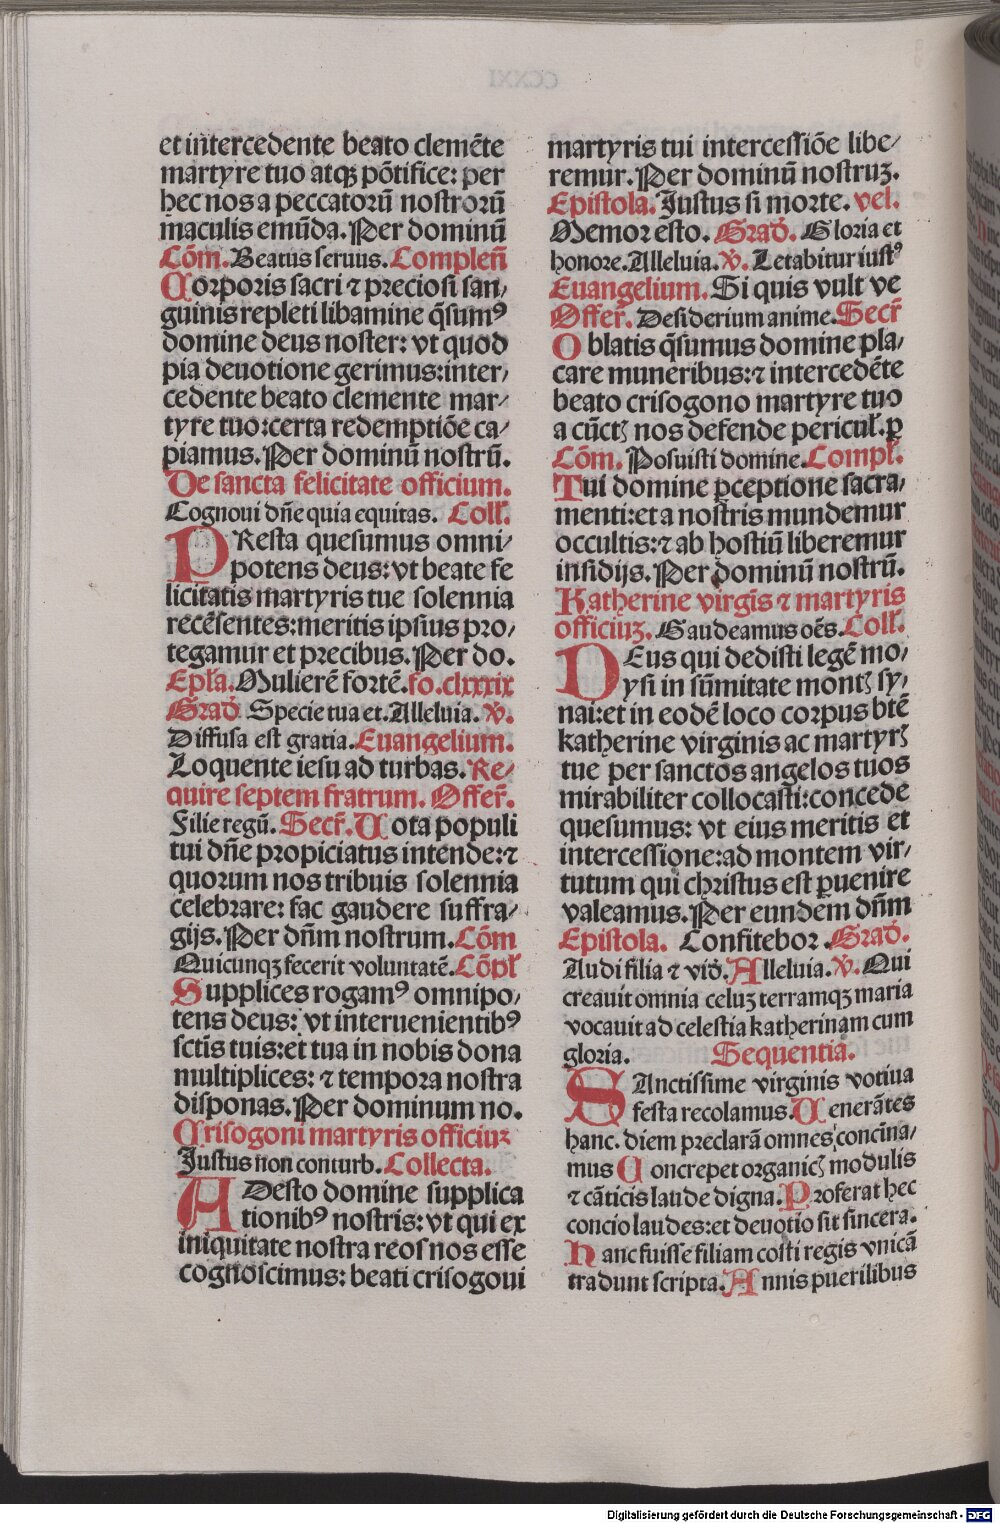 et intercedente beato clemēte
martyre tuo atqꝫ pōtifice: per
hec nos a peccatorū nostrorū
maculis emūda. Per dominū
Cōm. Beatus seruus. Compleñ
Corporis sacri ⁊ preciosi san⸗
guinis repleti libamine q̄sumꝰ
domine deus noster: vt quod
pia deuotione gerimus: inter⸗
cedente beato clemente mar⸗
tyre tuo: certa redemptiōe ca⸗
piamus. Per dominū nostrū.
De sancta felicitate officium.
Cognoui dñe quia equitas. Coll'.
PResta quesumus omni⸗
potens deus: vt beate fe
licitatis martyris tue solennia
recēsentes: meritis ipsius pro⸗
tegamur et precibus. Per do.
Epl'a. Mulierē fortē. fo. clxxxix
Grad' Specie tua et. Alleluia. ꝟ.
Diffusa est gratia. Euangelium.
Loquente iesu ad turbas. Re⸗
quire septem fratrum. Offer̄.
Filie regū. Secr̄. Uota populi
tui dñe propiciatus intende: ⁊
quorum nos tribuis solennia
celebrare: fac gaudere suffra⸗
gijs. Per dn̄m nostrum. Cōm
Quicunqꝫ fecerit voluntatē. Cōpl'
Supplices rogamꝰ omnipo⸗
tens deus: vt interuenientibꝰ
sctīs tuis: et tua in nobis dona
multiplices: ⁊ tempora nostra
disponas. Per dominum no.
Crisogoni martyris officiuꝫ
Justus non conturb. Collecta.
ADesto domine supplica
tionibꝰ nostris: vt qui ex
iniquitate nostra reos nos esse
cognoscimus: beati crisogoni
martyris tui intercessiōe libe⸗
remur. Per dominū nostruꝫ.
Epistola. Justus si morte. vel.
Memor esto. Grad'. Gloria et
honore. Alleluia. ꝟ. Letabitur iustꝰ
Euangelium. Si quis vult ve
Offer̄. Desiderium anime. Secr̄
Oblatis q̄sumus domine pla⸗
care muneribus: ⁊ intercedēte
beato crisogono martyre tuo
a cūctꝭ nos defende pericul'. ꝑ
Cōm. Posuisti domine. Compl'.
Tui domine ꝑceptione sacra⸗
menti: et a nostris mundemur
occultis: ⁊ ab hostiū liberemur
insidijs. Per dominū nostrū.
Katherine virgīs ⁊ martyris
officiuꝫ. Gaudeamus oēs. Coll'.
DEus qui dedisti legē mo⸗
ysi in sūmitate montꝭ sy⸗
nai: et in eodē loco corpus btē
katherine virginis ac martyrꝭ
tue per sanctos angelos tuos
mirabiliter collocasti: concede
quesumus: vt eius meritis et
intercessione: ad montem vir⸗
tutum qui christus est ꝑuenire
valeamus. Per eundem dn̄m
Epistola. Confitebor. Grad'.
Audi filia ⁊ vid'. Alleluia. ꝟ. Qui
creauit omnia celuꝫ terramqꝫ maria
vocauit ad celestia katherinam cum
gloria. Sequentia.
SAnctissime virginis votiua
festa recolamus. Uenerātes
hanc diem preclarā omnes concina⸗
mus Concrepet organicꝭ modulis
⁊ cāticis laude digna. Proferat hec
concio laudes: et deuotio sit sincera.
Hanc fuisse filiam costi regis vnicā
tradunt scripta. Annis puerilibus
Digitalisierung gefördert durch die Deutsche Forschungsgemeinschaft - DFG